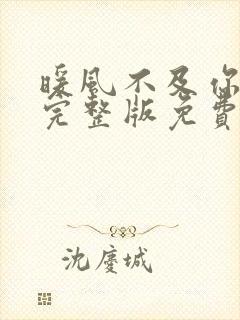 暖風不及你
完整版免費
沈慶城